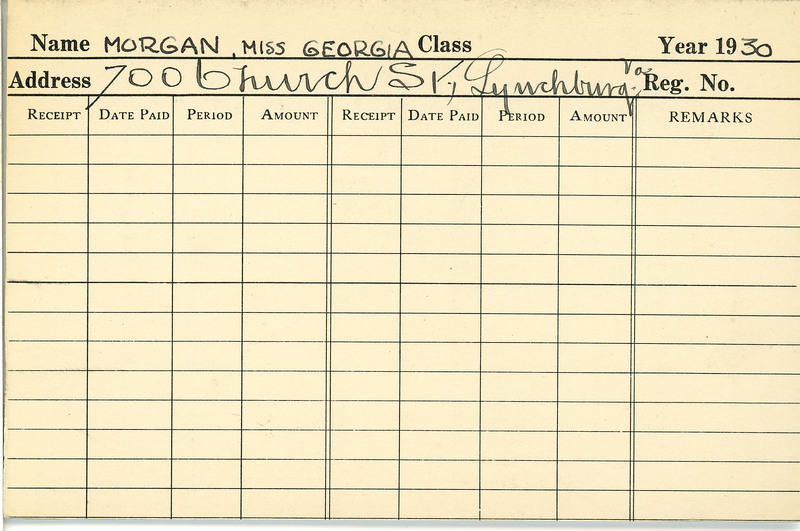 Name MORGAN, MISS GEORGIA Class Year 1930
Address 700 Church St., Lynchburg, Va. Reg. No.
RECEIPT DATE PAID PERIOD AMOUNT RECEIPT DATE PAID PERIOD AMOUNT REMARKS